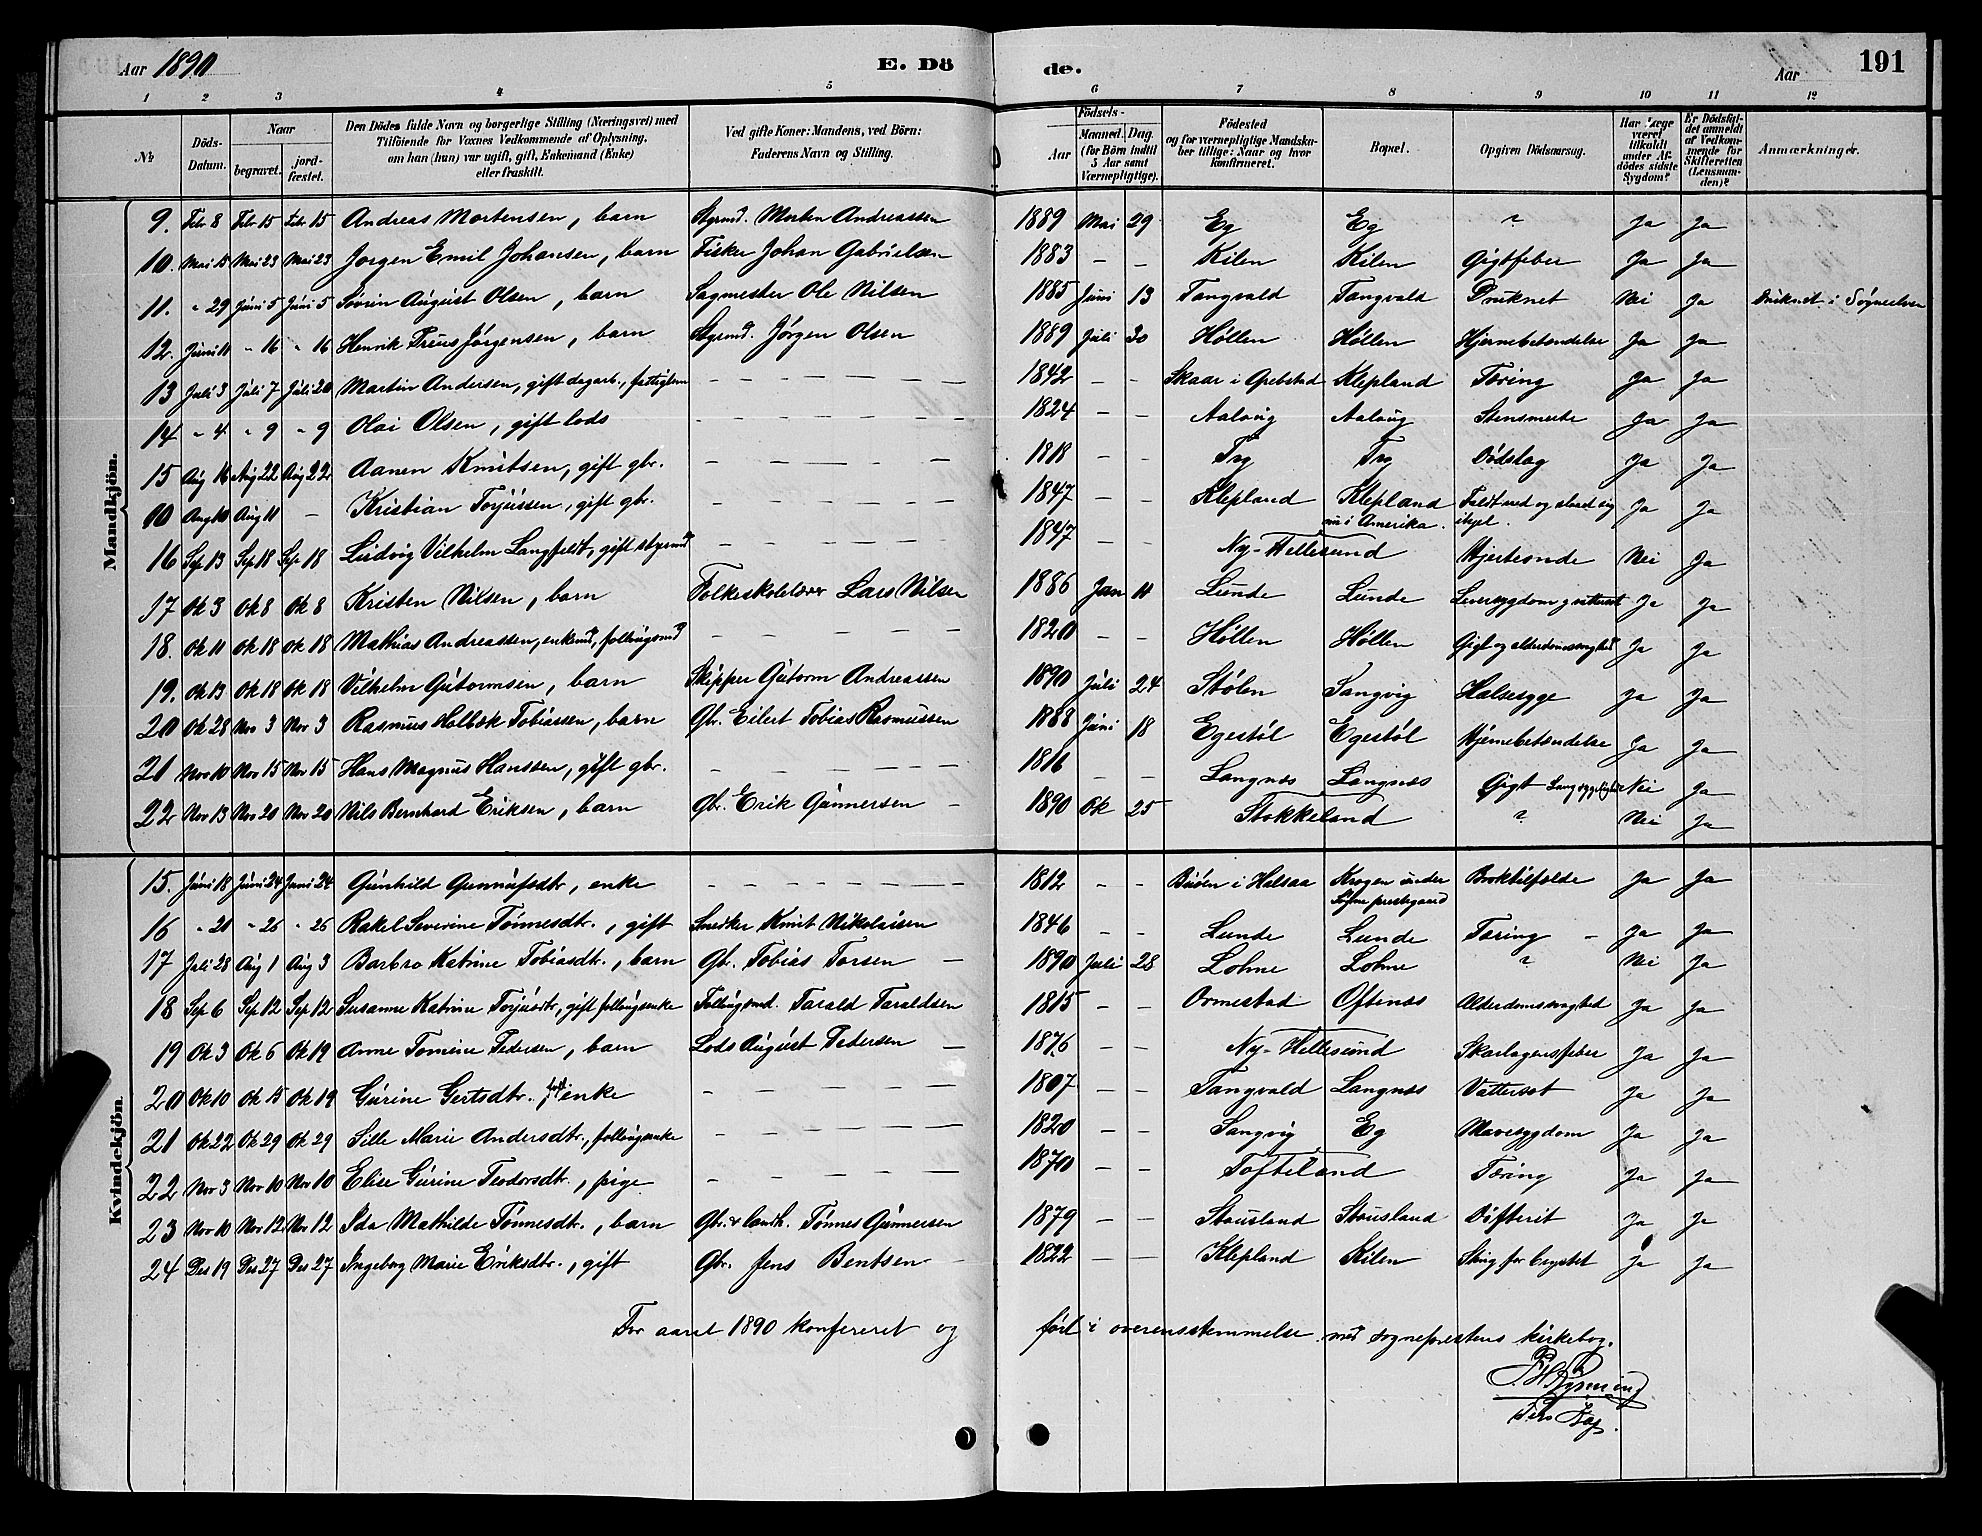 Aar 1890 E. Dö de. Aar 191
1 2 3 4 5 6 7 8 9 10 11 12
№ Döds-Datum. Naar begravet. jord-fæstet. Den Dödes fulde Navn og borgerlige Stilling (Næringsvei) med Tilföiende for Voxnes Vedkommende af Oplysning, om han (hun) var ugift, gift, Enkemand (Enke) eller fraskilt. Ved gifte Koner: Mandens, ved Börn: Faderens Navn og Stilling. Födsels-Aar Maaned. Dag. (for Börn indtil 5 Aar samt Værnepligtige). Födested og for værnepligtige Mandskaber tillige: Naar og hvor konfirmeret. Bopæl. Opgiven Dödsaarsag. Har Læge været tilkaldt under Afdödes sidste Sygdom? Er Dödsfaldet anmeldt af Vedkommende for Skifteretten (Lensmanden)? Anmærkninger.
Mandkjön.
9. Febr 8 Febr 15 Febr 15 Andreas Mortensen, barn Styrmd. Morten Andreassen 1889 Mai 29 Eg Eg ? Ja Ja
10. Mai 15 Mai 23 Mai 23 Jørgen Emil Johansen, barn Fisker Johan Gabrielsen 1883 – – Kilen Kilen Gigtfeber Ja Ja
11. " 29 Juni 5 Juni 5 Søvrin August Olsen, barn Sagmester Ole Nilsen 1885 Juni 13 Tangvald Tangvald Druknet Nei Ja Druknet i Søgneelven
12. Juni 11 " 16 " 16 Henrik Jørgensen, barn Styrmd. Jørgen Olsen 1889 Juli 30 Høllen Høllen Hjernebetændelse Ja Ja
13 Juli 3 Juli 7 Juli 20 Martin Andersen, gift dagarb., fattiglem – – – – – – – 1842 – – Skaar i Grebstad Klepland Tæring Ja Ja
14 " 4 " 9 " 9 Olai Olsen, gift lods – – – – – – – 1824 – – Aalovig Aalovig Stensmerte Ja Ja
15 Aug 16 Aug 22 Aug 22 Aanen Knutsen, gift gbr. – – – – – – – 1818 – – Try Try Dødslag Ja Ja
10 Aug 10 Aug 11 – Kristian Torjussen, gift gbr. 1847 – – Klepland Klepland nu i Amerika. Faldt ned og slœd sig ihjel. Ja Ja
16 Sep 13 Sep 18 Sep 18 Ludvig Vilhelm Langfeldt, gift styrmd 1847 – – Ny-Hellesund Hjertesonde Nei Ja
17 Ok 3 Ok 8 Ok 8 Kristen Nilsen, barn Folkeskolelærer Lars Nilsen 1886 Jan 11 Lunde Lunde Leversygdom g vattersot Ja Ja
18. Ok 11 Ok 18 Ok 18 Mathias Andreassen, enkemd, follougsmd – – – – – – 1820 – – Høllen Høllen Gigt og alderdomssvaghed Ja Ja
19. Ok 13 Ok 18 Ok 18 Vilhelm Gutormsen, barn Skipper Gutorm Andreassen 1890 Juli 24 Stølen Sangvig Halsesyge Ja Ja
20 Ok 28 Nov 3 Nov 3 Rasmus Holbæk Tobiassen, barn Gbr. Eilert Tobias Rasmussen 1888 Juni 18 Egestøl Egestøl Hjernebetændelse Ja Ja
21 Nov 10 Nov 15 Nov 15 Hans Magnus Hanssen, gift gbr. – – – – – – 1816 – – Langnes Langnes Gigt Nei Ja
22 Nov 13 Nov 20 Nov 20 Nils Bernhard Eriksen, barn Gbr. Erik Gunnersen – 1890 Ok 25 Stokkeland ? Nei Ja
Kvindekjön.
15. Juni 18 Juni 24 Juni 24 Gunhild Gunnufsdtr, enke – – – – – – – 1812 – – Buøen i Halsaa Krogen under Søgne prestegaard Broktilfælde Ja Ja
16 " 21 " 26 " 26 Rakel Severine Tønnesdtr., gift Snedker Knut Nikolaisen 1846 – – Lunde Lunde Tæring – Ja Ja
17 Juli 28 Aug 1 Aug 3 Barbro Katrine Tobiasdtr., barn Gbr. Tobias Torsen – 1890 Juli 28 Lohne Lohne ? Nei Ja
18 Sep 6 Sep 12 Sep 12 Susanne Katrine Torjusdtr., gift Follougsmd. Tarald Taraldsen 1815 – – Ormestad Oftenes Alderdomssvaghed Ja Ja
19 Ok 3 Ok 6 Ok 19 Anne Tomine Pedersen, barn Lods August Pedersen – 1876 – – Ny-Hellesund Skarlagensfeber Ja Ja
20 Ok 10 Ok 15 Ok 19 Gurine Gertsdtr. enke – – – – – – 1807 – – Tangvald Langnes Vattersot Ja Ja
21 Ok 22 Ok 29 Ok 29 Sille Marie Andersdtr., follougsenke – – – – – – – 1820 – – Sangvig Eg Mavesygdom Ja Ja
22 Nov 3 Nov 10 Nov 10 Elise Gurine Teodorsdtr., pige – – – – – – 1870 – – Tofteland Tæring Ja Ja
23 Nov 10 Nov 12 Nov 12 Ida Mathilde Tønnesdtr., barn Gbr. & landh. Tønnes Gunnersen 1879 – – Stausland Stausland Difterit Ja Ja
24 Des 19 Des 27 Des 27 Ingeborg Marie Eriksdtr., gift Gbr. Jens Bentsen – 1822 – – Klepland Kilen Sting for brystet Ja Ja
For aaret 1890 konfereret og ført i overensstemmelse med sogneprestens kirkebog.